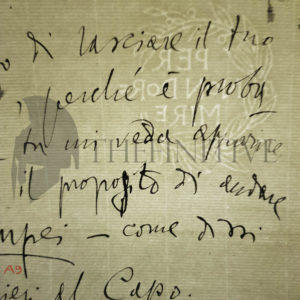 di lasciare il tuo
, perché è proba
tu mi veda apparire
il proposito di andare
mpei - come dissi
ieri al Capo.
PER
NON DOR
MIRE
THEFINITIVE
A9